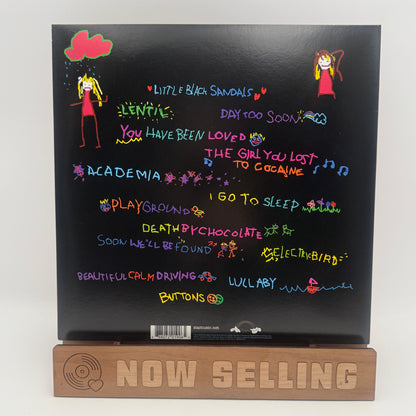 LITTLE BLACK SANDALS
LENTIL
DAY TOO SOON
YOU HAVE BEEN LOVED
THE GIRL YOU LOST
TO COCAINE
ACADEMIA
I GO TO SLEEP
PLAYGROUND
DEATH BY CHOCOLATE
SOON WE'LL BE FOUND
ELECTRIC BIRD
BEAUTIFUL CALM DRIVING
LULLABY
BUTTONS
NOW SELLING